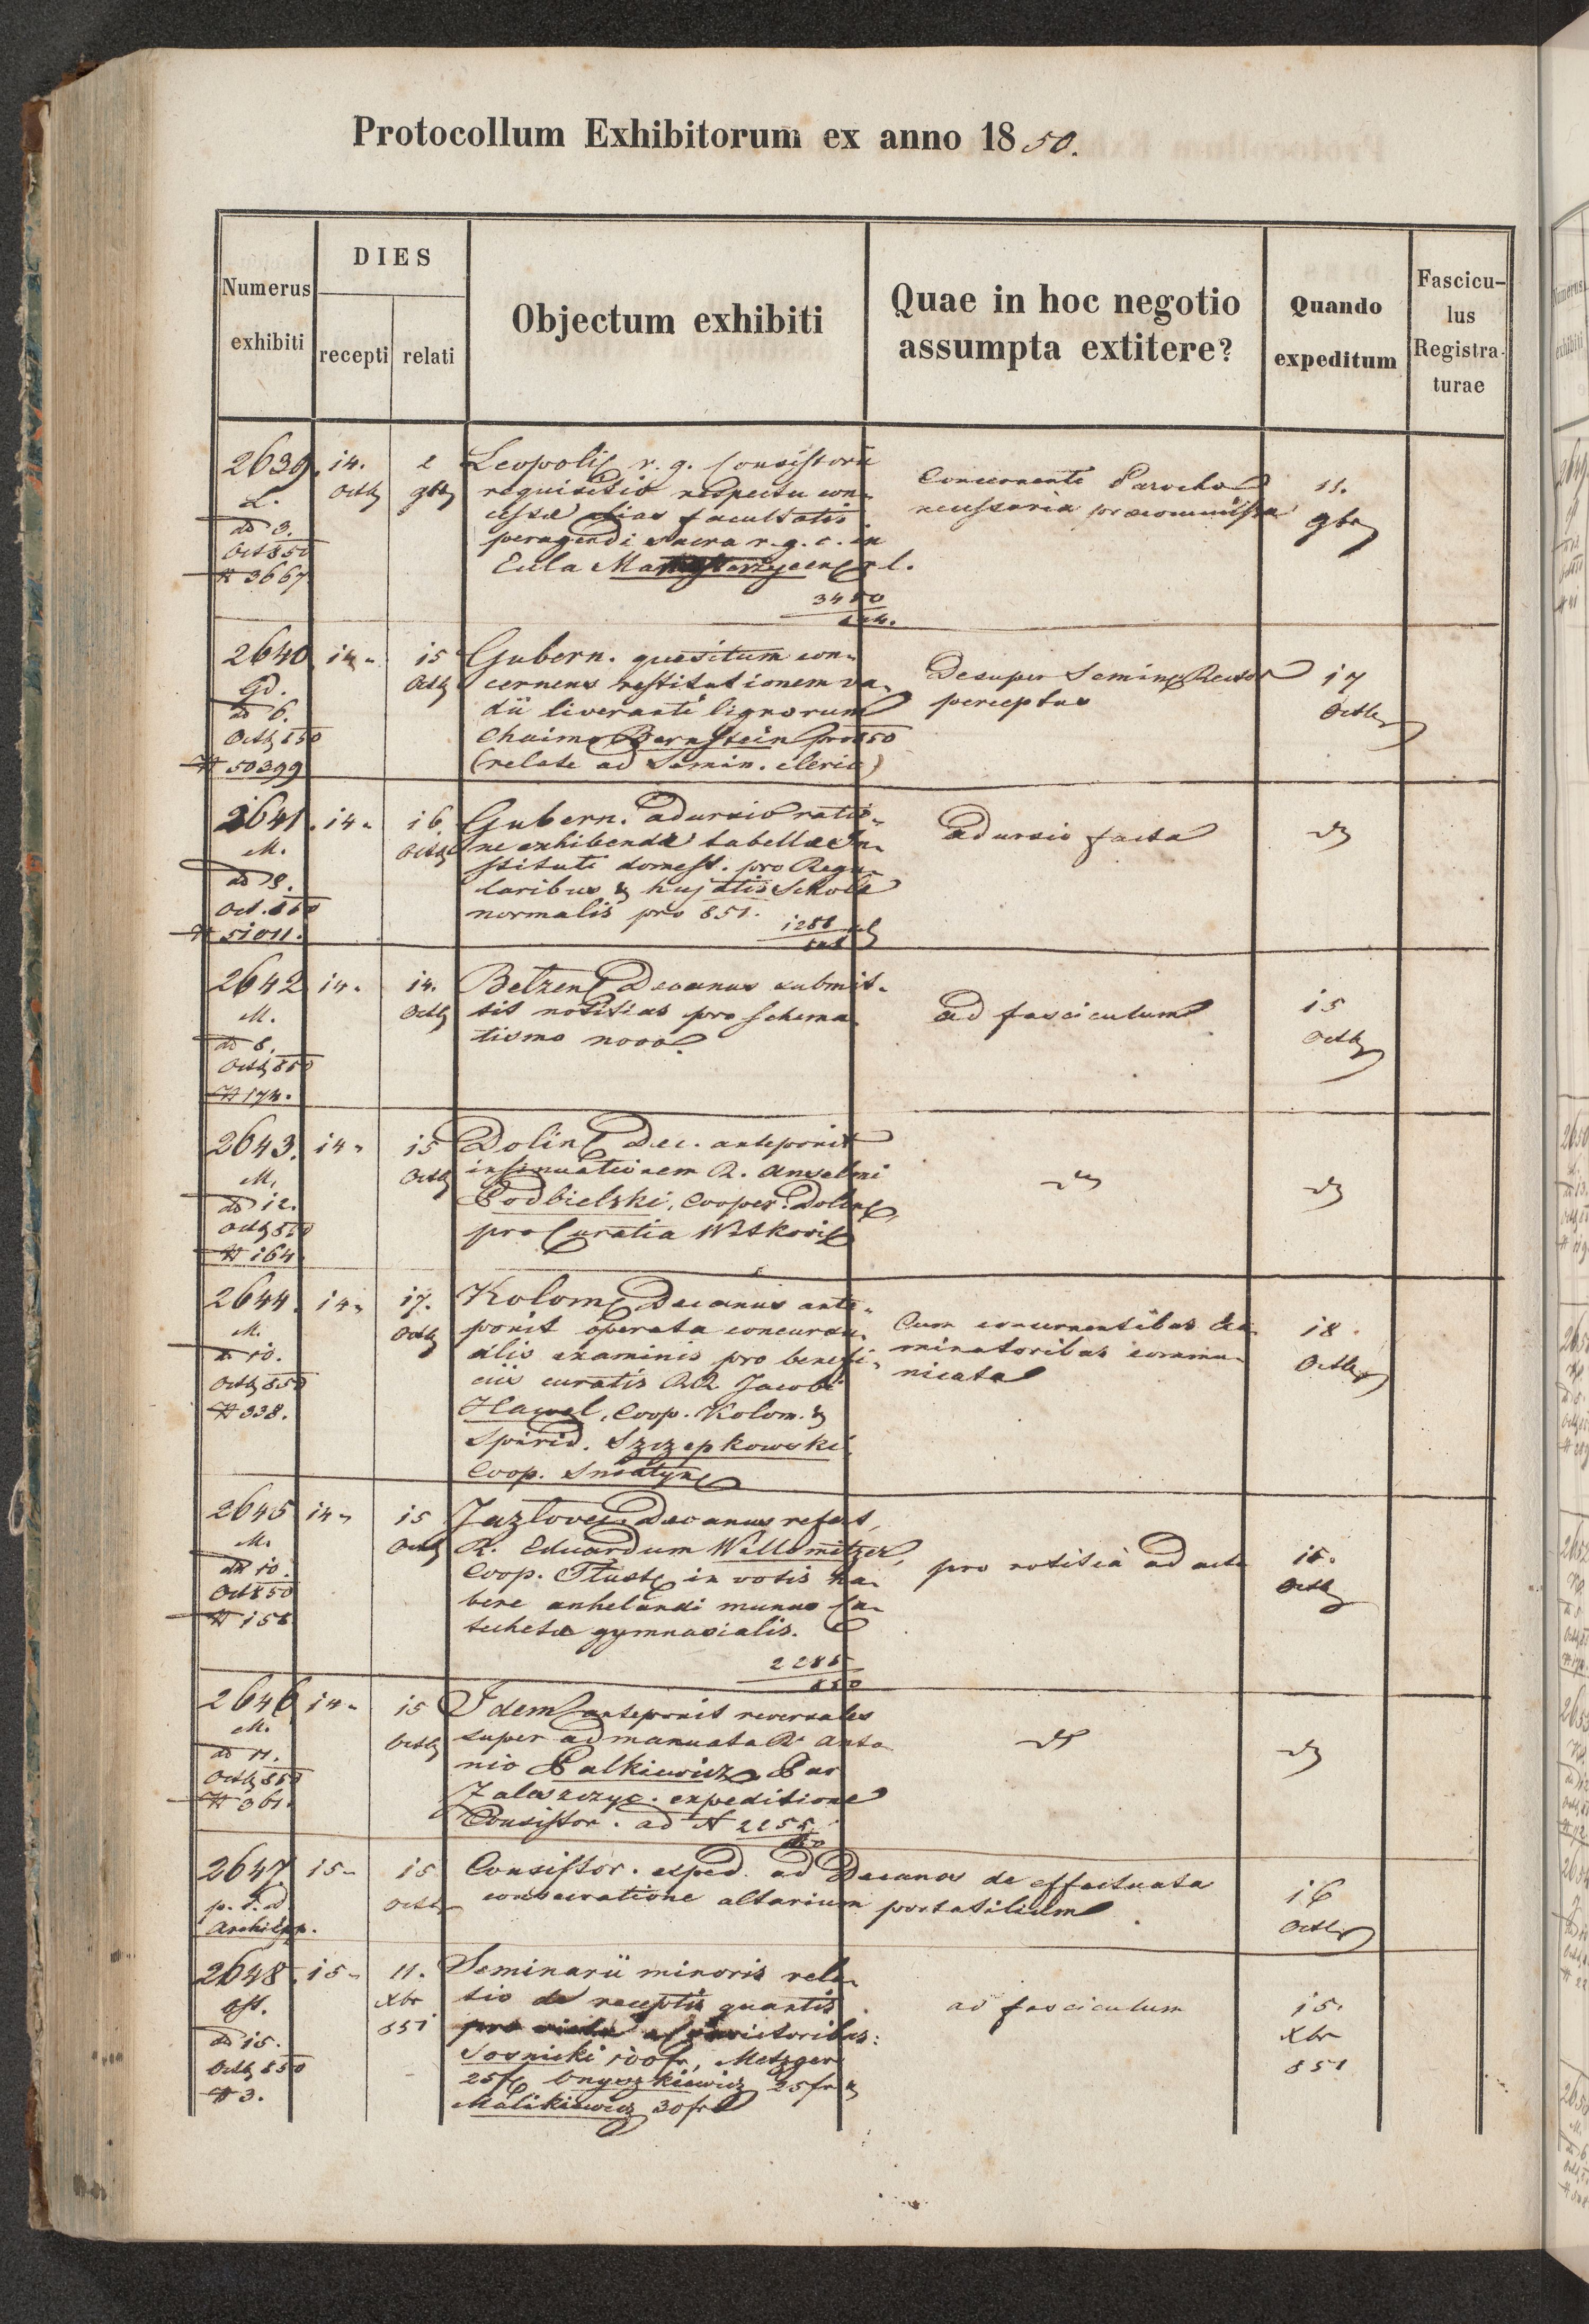 Protocollum Exhibitorum ex anno 18 50.
Numerus exhibiti
DIES
recepti
relati
Objectum exhibiti
Quae in hoc negotio assumpta extitere?
Quando expeditum
Fascicu-
lus
Registra-
turae
2639.
L.
dd 3.
Oct 850
N 3667
14.
Octb
2
9br
Leopolis r. g. Consistorii
requisitio respectu con-
cessae alias facultatis
peragendi sacra r. g. c. in
r. l.
3480
Concernenti Parocho
necessaria praecommissa
11.
9br
2640
Gd.
dd 6.
Octb 850
N 50399
14 "
15
Octb
Gubern. quaesitum con-
cernens restitutionem va-
dii liveranti lignorum
Chaimo Bernstein pro 850
(relate ad Semin. cleric)
Desuper Semin. Rector
perceptus
17
Octbr
2641.
M.
dd 8.
Oct. 850
N 51011.
14 "
16
Octb
Gubern. adursio ratio-
ne exhibendae tabellae In-
stituti domest. pro Regu-
laribus & hujatis Schola
normalis pro 851.
1286
adursio facta
2642
M.
dd 8.
Octb 850
N 174.
14 "
14.
Octb
Belzens Decanus submit-
tit notitias pro schema-
tismo novo.
ad fasciculum
15
Octb
2643.
M.
dd 12.
Octb 850
N 164
14 "
15
Octb
Dolin Dec. anteponit
insinuationem R. Anselmi
Podbielski, Cooper. Dolin
pro Curatia Witkovis
2644.
M.
dd 10.
Octb 850
N 338.
14 "
17.
Octb
Kolom Decanus ante-
ponit operata concursu-
alis examinis pro benefi-
ciis curatis RR Jacobi
Hawel, Coop. Kolom. &
Spirid. Szczepkowski
Coop. Sniatyn
Cum concernentibus exa-
minatoribus commu-
nicata
18.
Octbr
2645
M.
dd 10.
Oct 850
N 156
14 "
15
Octb
Jazlovec. Decanus refert,
R. Eduardum Willomitzer,
Coop. Tlust in votis ha-
bere anhelandi munus Ca-
techetae gymnasialis.
2285
850
pro notitia ad acta
15.
Octb
2646
M.
dd 11.
Octb 850
N 361.
14 "
15
Octb
Idem anteponit reversales
super admanuata R. Anto-
nio Palkiewicz Par
Zaleszczyc. expeditione
Consistor. ad N 2255
850
2647
p. d. ad
Archiepp.
15 "
15
Octbr
Consistor. exped. ad Decanos de effectuata
consecratione altarium portatilium
16
Octbr
2648.
Ost.
dd 15.
Octb 850
N 3.
15 "
11.
Xbr
851
Seminarii minoris rela-
tio de receptis quantis
pro victu a Convictoribus:
Sosnicki 100 fr, Metzger
25 f, 25 fr &
Malikiewicz 30 fr
ad fasciculum
15.
Xbr
851